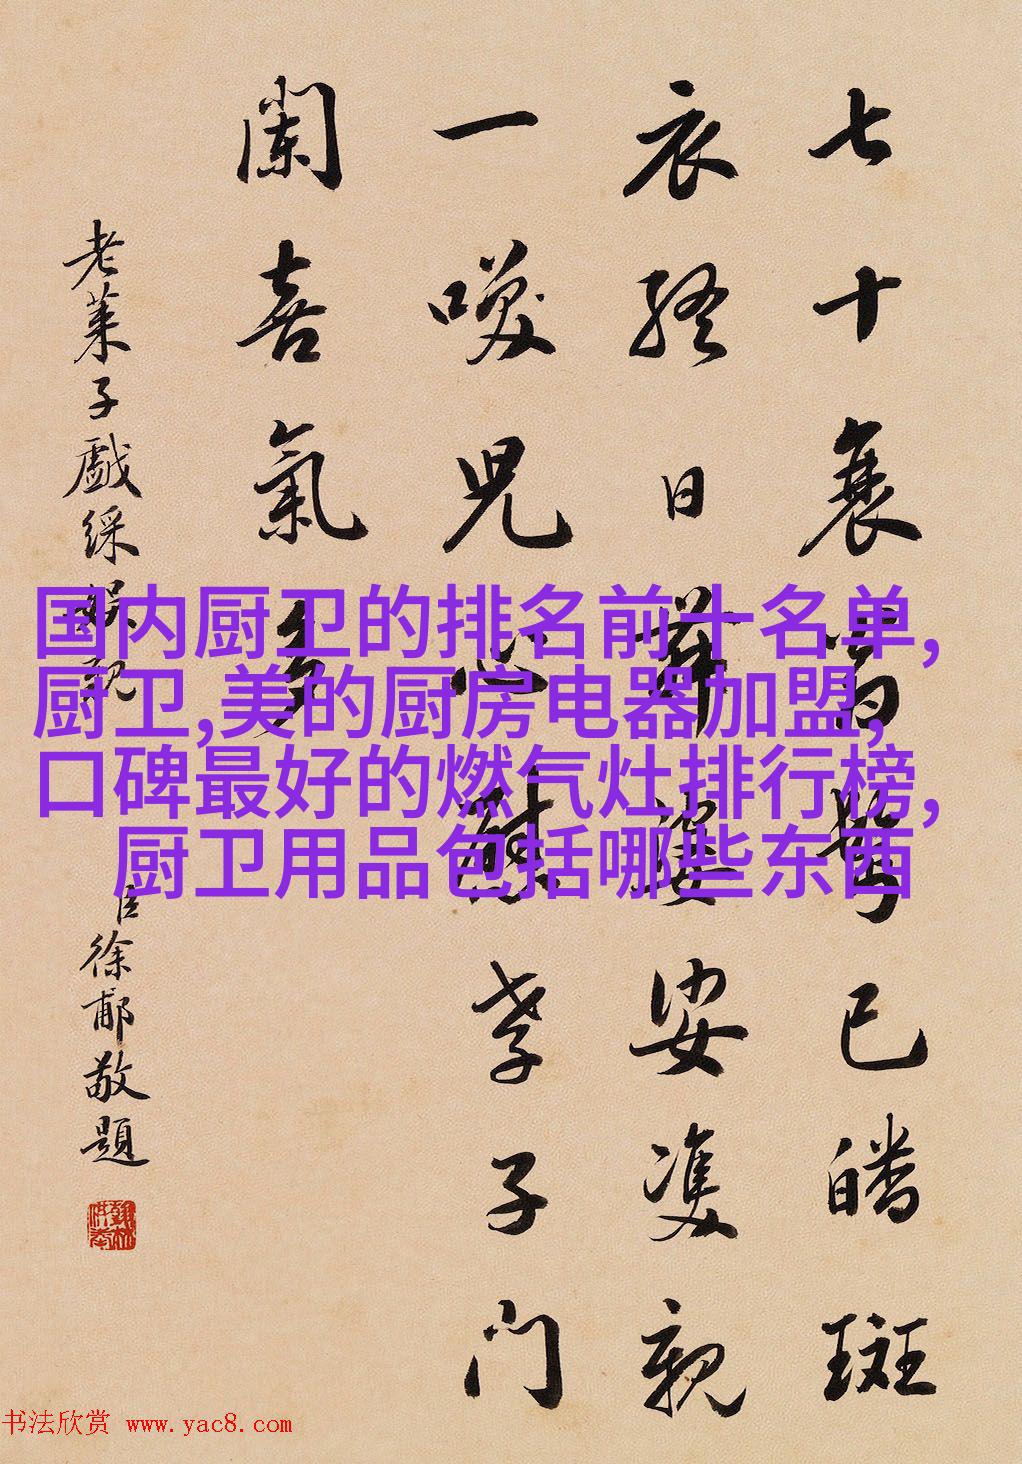 国内厨卫的排名前十名单,
厨卫,美的厨房电器加盟,
口碑最好的燃气灶排行榜,
厨卫用品包括哪些东西
七十衰翁鬢已皤斑
衣終日舞婆娑雙親
一兒心慰孝子門
闌喜氣多
老萊子戲綵娛親
臣徐郙敬題
书法欣赏 www.yac8.com